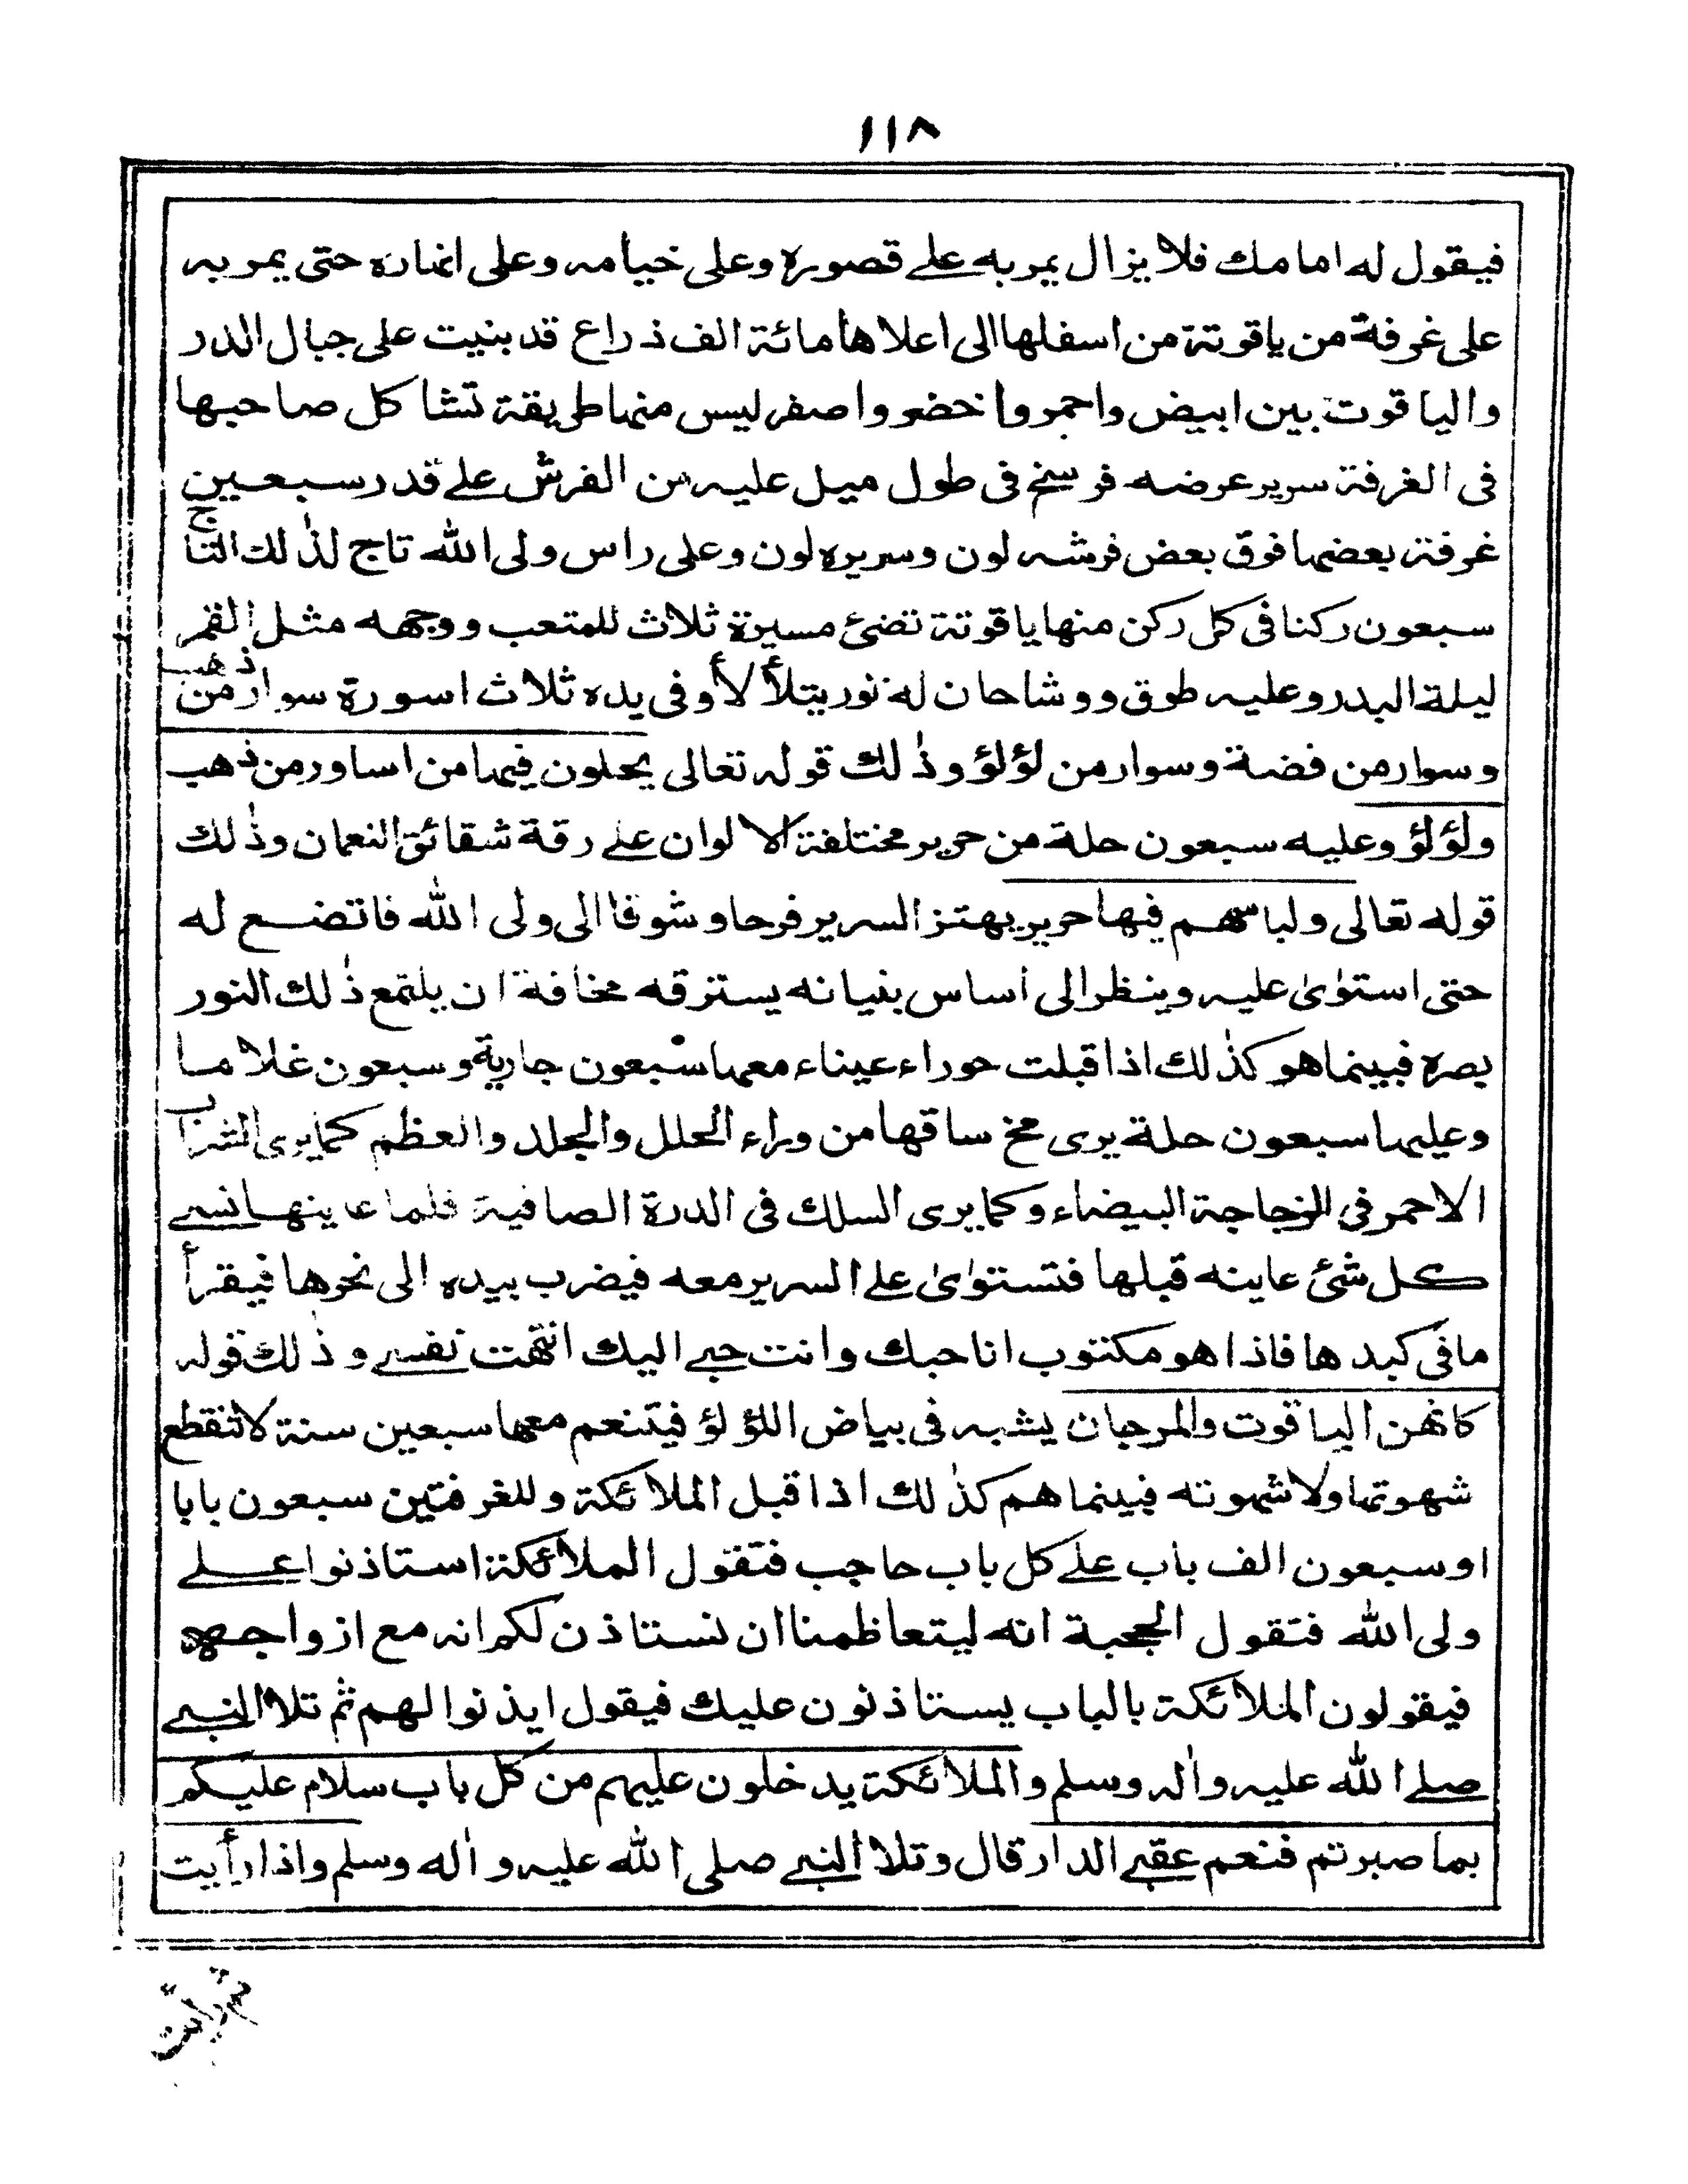 ١١٨
فيقول له امامك فلا يزال يمر به على قصوره وعلى خيامه وعلى انهاره حتى يمر به
على غرفة من ياقوتة من اسفلها الى اعلاها مائة الف ذراع قد بنيت على جبال الدر
والياقوت بين ابيض واحمر واخضر واصفر ليس منها طريقة تشاكل صاحبها
فى الغرفة سرير عرضه فرسخ فى طول ميل عليه من الفرش على قدر سبعين
غرفة بعضها فوق بعض فرشه لون وسريره لون وعلى راس ولى الله تاج لذٰلك التاج
سبعون ركنا فى كل ركن منها ياقوتة تضئ مسيرة ثلاث للمتعب ووجهه مثل القمر
ليلة البدر وعليه طوق ووشاحان له نور يتلألأ وفى يده ثلاث اسورة سوار من ذهب
وسوار من فضة وسوار من لؤلؤ وذٰلك قوله تعالى يحلون فيها من اساور من ذهب
ولؤلؤ وعليه سبعون حلة من حرير مختلفة الالوان على رقة شقائق النعمان وذٰلك
قوله تعالى ولباسهم فيها حرير يهتز السرير فرحا وشوقا الى ولى الله فاتضع له
حتى استوٰى عليه وينظر الى أساس بنيانه يسترقه مخافة ان يلتمع ذٰلك النور
بصره فبينما هو كذٰلك اذا قبلت حوراء عيناء معها سبعون جارية وسبعون غلاما
وعليها سبعون حلة يرى مخ ساقها من وراء الحلل والجلد والعظم كما يرى الشراب
الاحمر فى الزجاجة البيضاء وكما يرى السلك فى الدرة الصافية فلما عاينها نسى
كل شئ عاينه قبلها فتستوٰى على السرير معه فيضرب بيده الى نحرها فيقرأ
ما فى كبدها فاذا هو مكتوب انا حبك وانت حبى اليك انتهت نفسى وذٰلك قوله
كانهن الياقوت والمرجان يشبه فى بياض اللؤلؤ فيتنعم معها سبعين سنة لا تنقطع
شهوتها ولا شهوته فبينما هم كذٰلك اذا قبل الملائكة وللغرفتين سبعون بابا
او سبعون الف باب على كل باب حاجب فتقول الملائكة استاذنوا على
ولى الله فتقول الحجبة انه ليتعاظمنا ان نستاذن لكم انه مع ازواجه
فيقولون الملائكة بالباب يستاذنون عليك فيقول ايذنوا لهم ثم تلا النبى
صلى الله عليه واٰله وسلم والملائكة يدخلون عليهم من كل باب سلام عليكم
بما صبرتم فنعم عقبى الدار قال وتلا النبى صلى الله عليه واٰله وسلم واذا رأيت
ثم رأيت